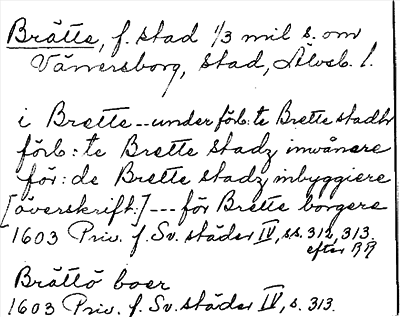 Brätte, f. stad 1/3 mil s. om
Vänersborg, stad, Älvsb. l.
i Brette -- under förb:te Brette stadz
förb:te Brette stadz inwånare
för:de Brette stadz inbyggiere
[överskrift:] --- för Brette borgere
1603 Priv. f. Sv. städer IV, s.s. 312, 313.
efter RR
Brättö boer
1603 Priv. f. Sv. städer IV, s. 313.